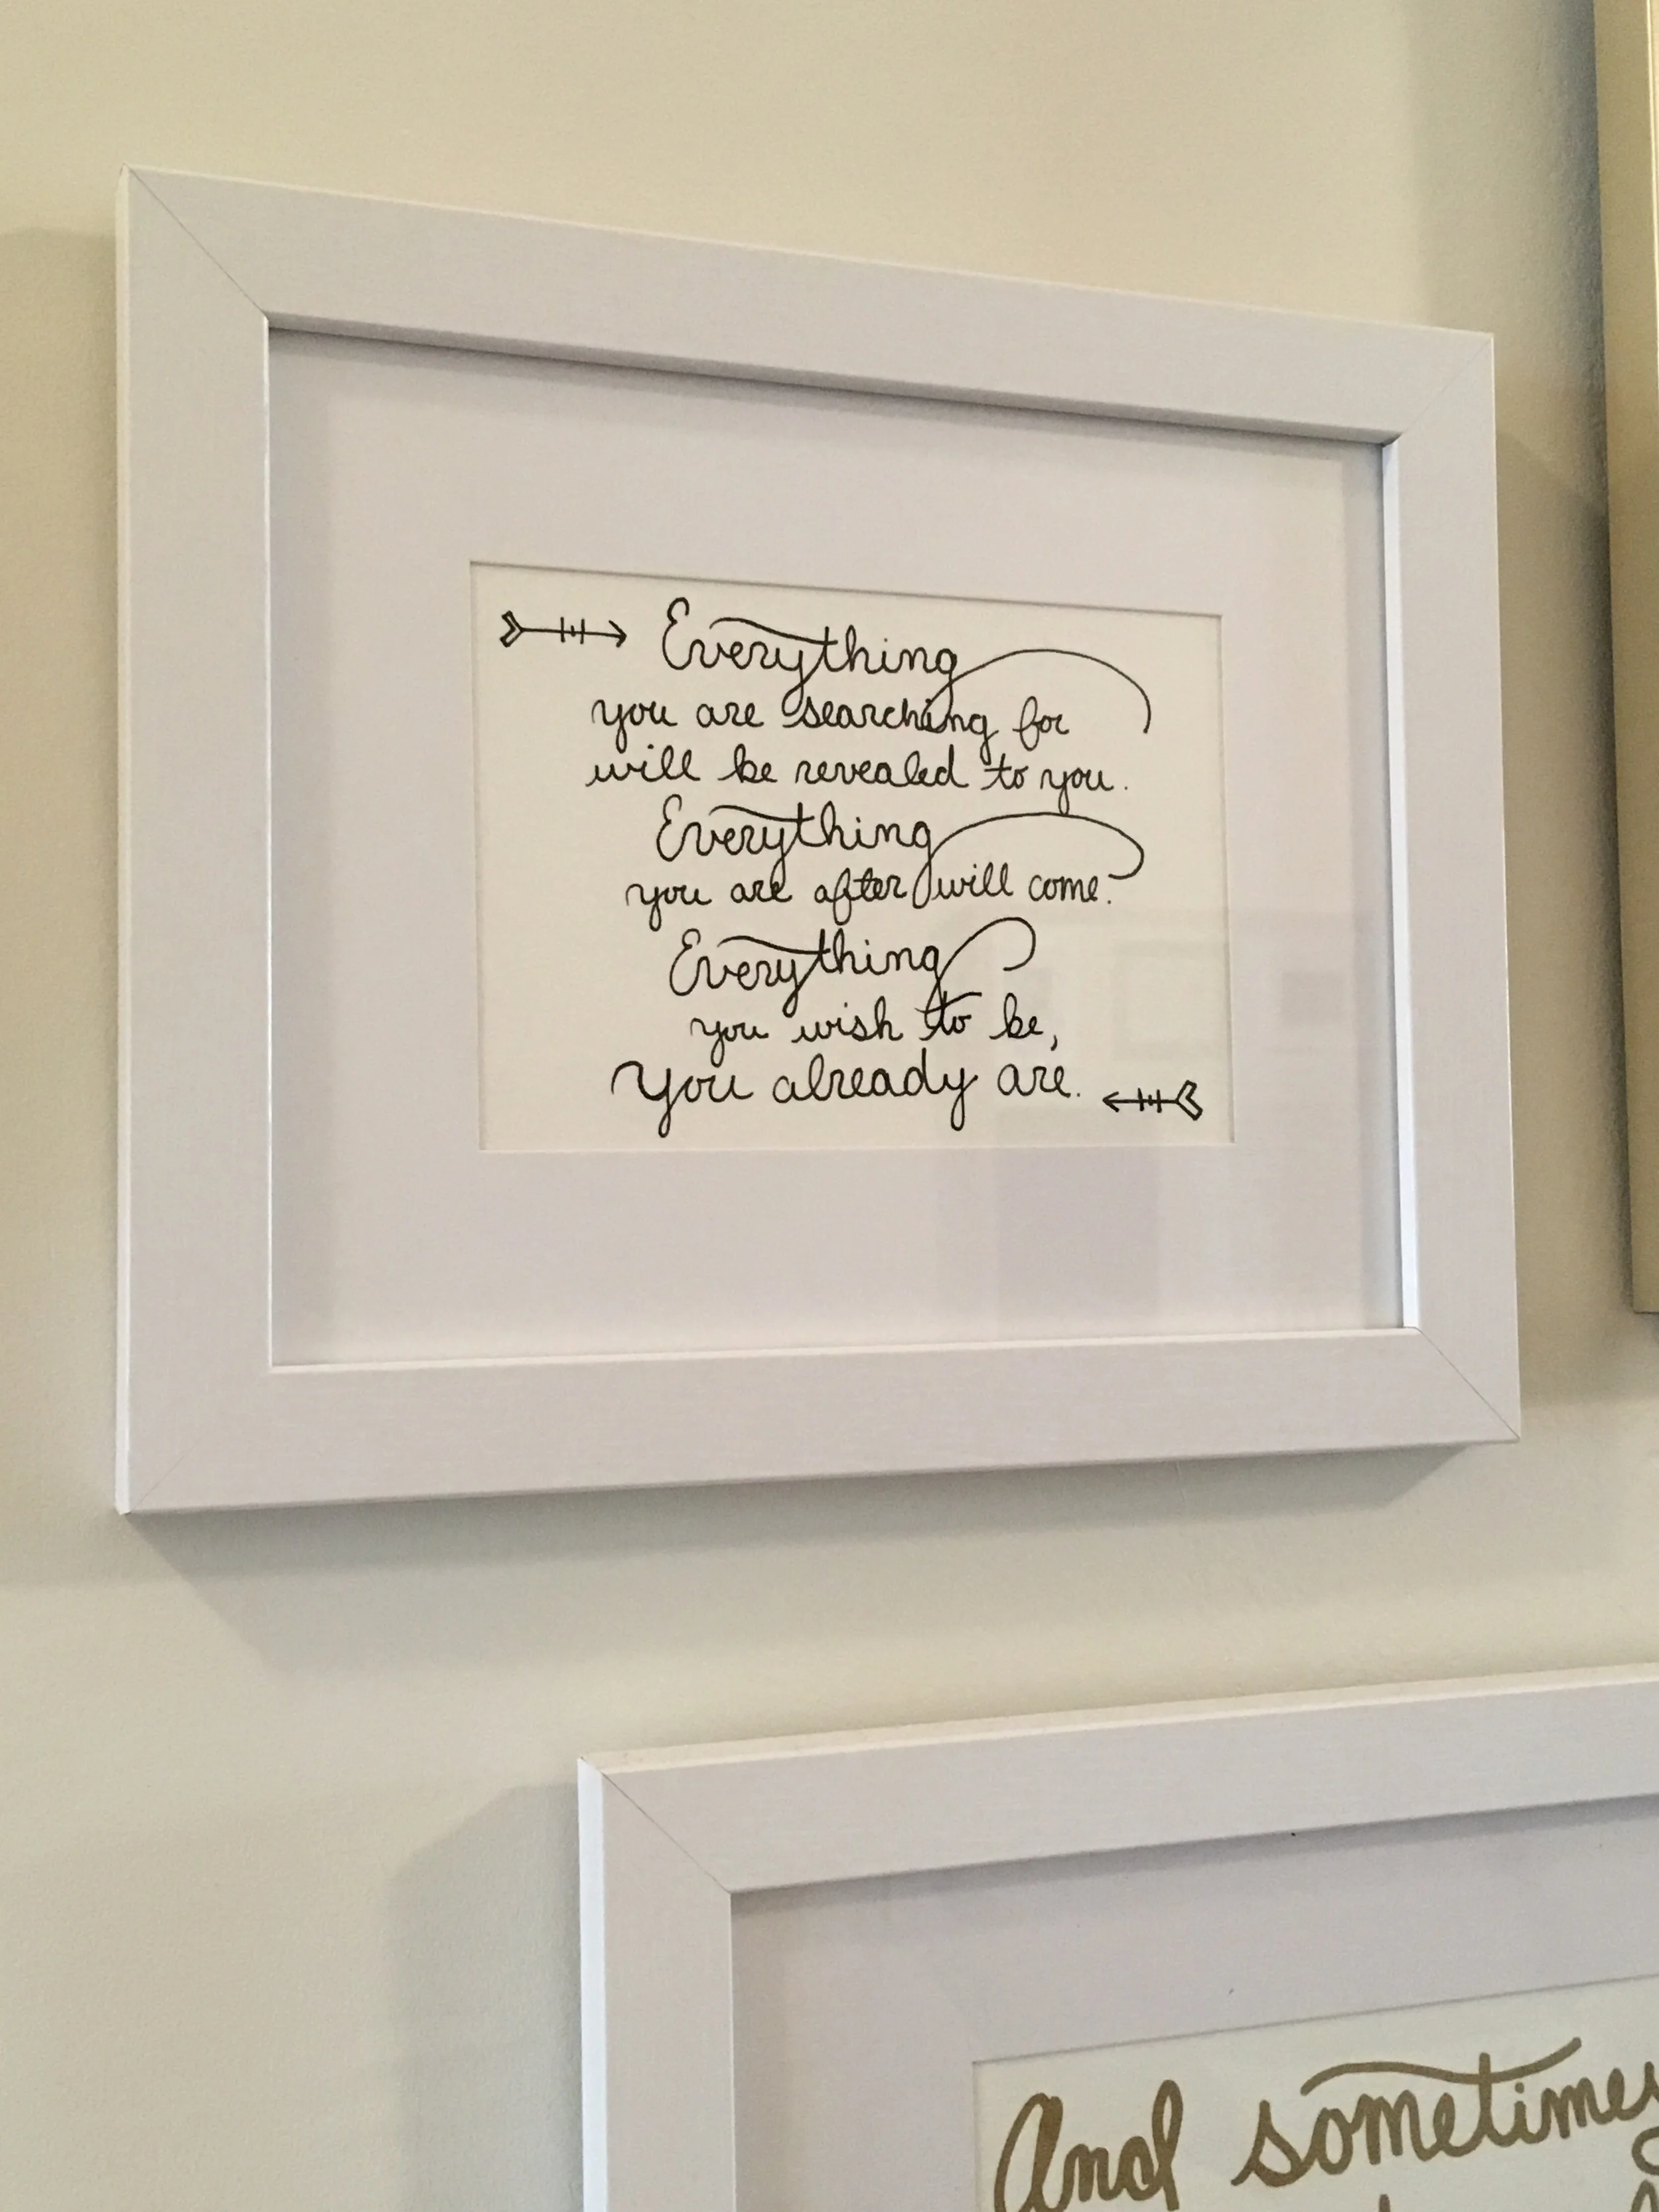 Everything
you are searching for
will be revealed to you.
Everything
you are after will come.
Everything
you wish to be,
you already are.
And sometimes